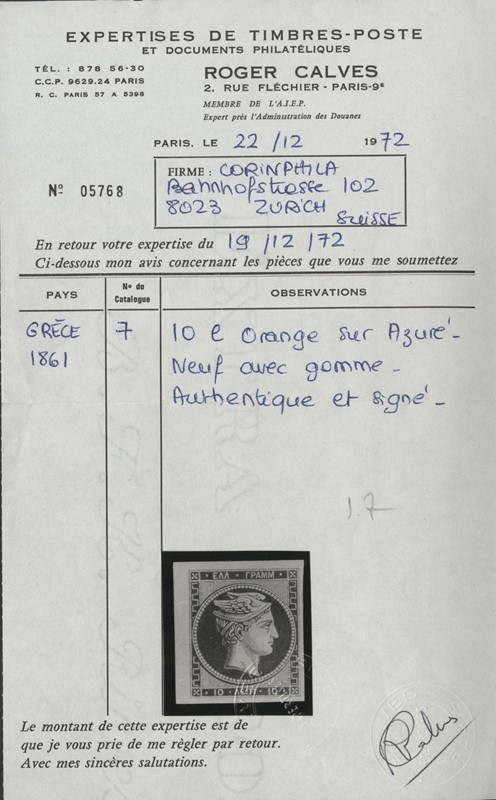 EXPERTISES DE TIMBRES-POSTE
ET DOCUMENTS PHILATÉLIQUES
TÉL. : 878 56-30
C.C.P. 9629.24 PARIS
R. C. PARIS 57 A 5398
ROGER CALVES
2, RUE FLÉCHIER - PARIS-9E
MEMBRE DE L'A.I.E.P.
Expert près l'Administration des Douanes
PARIS, LE 22/12 1972
No 05768
FIRME : CORINPHILA
Bahnhofstrasse 102
8023 ZURICH
SUISSE
En retour votre expertise du 19/12/72
Ci-dessous mon avis concernant les pièces que vous me soumettez
PAYS
No de Catalogue
OBSERVATIONS
GRÈCE 7 10 l Orange sur Azuré -
1861 Neuf avec gomme -
Authentique et signé -
1.7
ΕΛΛ ΓΡΑΜΜ
10 ΛΕΠ 10
Le montant de cette expertise est de
que je vous prie de me règler par retour.
Avec mes sincères salutations.